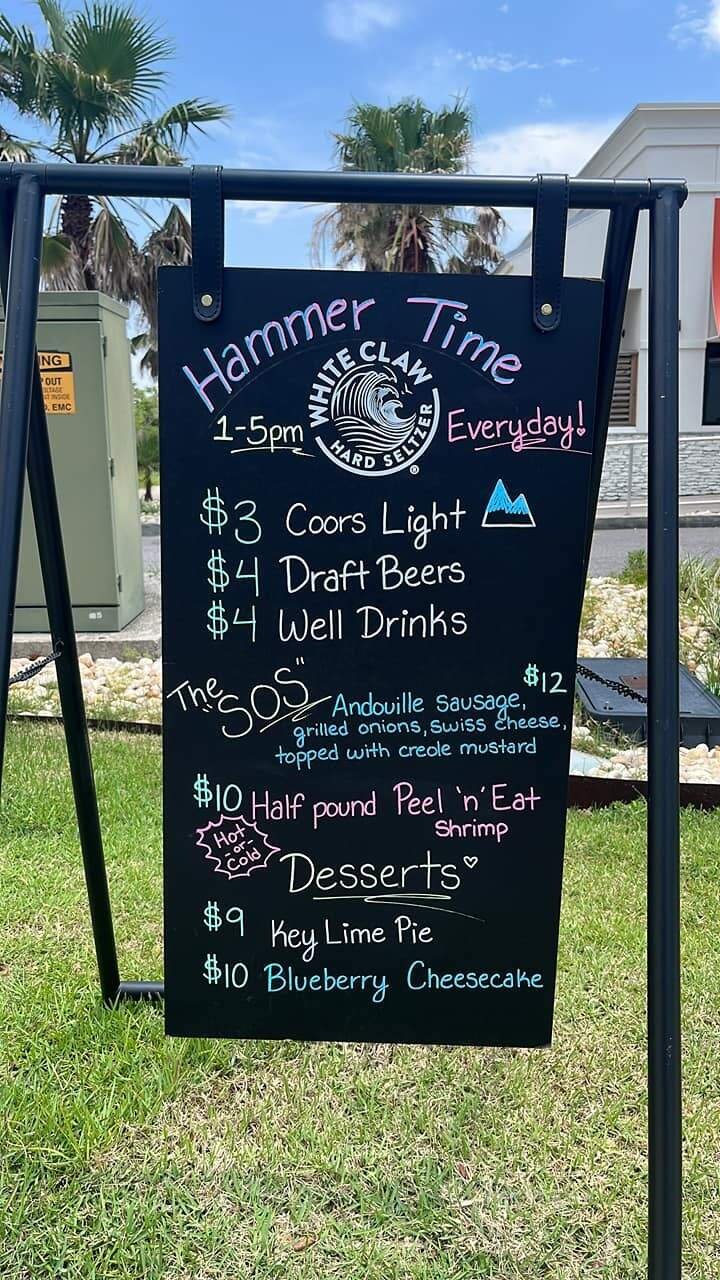 Hammer Time
WHITE CLAW
HARD SELTZER
®
1-5pm
Everyday!
$3 Coors Light
$4 Draft Beers
$4 Well Drinks
The "SOS" $12
Andouille sausage,
grilled onions, swiss cheese,
topped with creole mustard
$10 Half pound Peel 'n' Eat
Shrimp
Hot
-or-
Cold
Desserts
$9 Key Lime Pie
$10 Blueberry Cheesecake
NG
OUT
EMC